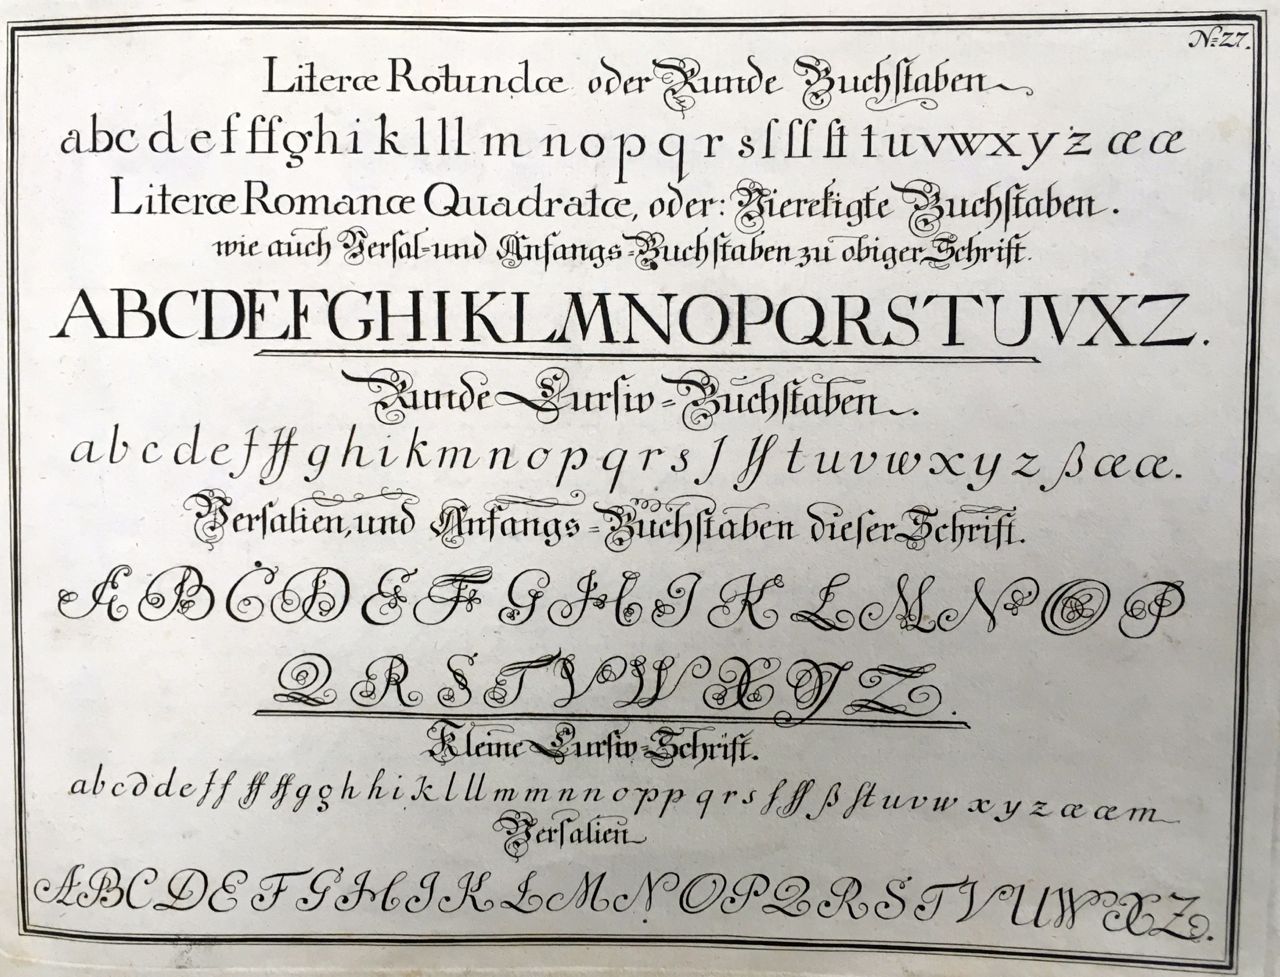 No. 27.
Literæ Rotundæ oder Runde Buchſtaben
a b c d e f ff g h i k l ll m n o p q r s ſ ſſ ſt t u v w x y z æ œ
Literæ Romanæ Quadratæ, oder: Vierekigte Buchſtaben.
wie auch Verſal- und Anfangs-Buchſtaben zu obiger Schrift.
A B C D E F G H I K L M N O P Q R S T U V X Z.
Runde Curſiv-Buchſtaben.
a b c d e f ff g h i k m n o p q r s ſ ſſ t u v w x y z ß æ œ.
Verſalien, und Anfangs-Buchſtaben dieſer Schrift.
A B C D E F G H I K L M N O P
Q R S T V W X Y Z.
Kleine Curſiv-Schrift.
a b c d d e f f ff ff g g h h i k l ll m m n n o p p q r s ſ ſſ ß ſt u v w x y z æ œ m
Verſalien
A B C D E F G H I K L M N O P Q R S T V U W X Z.